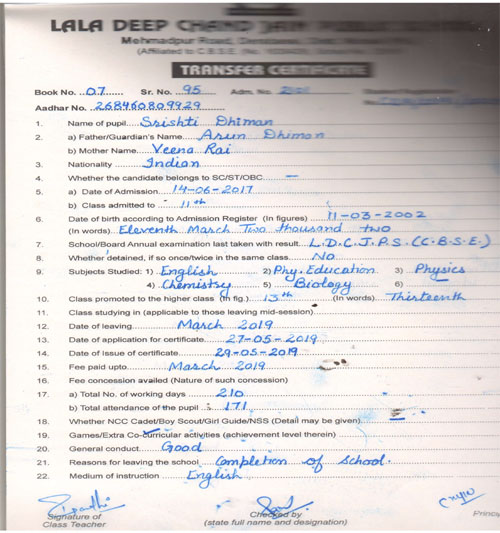 LALA DEEP CHAND JAIN PUBLIC
Mehmadpur Road,
(Affiliated to C.B.S.E.
TRANSFER CERTIFICATE
Book No. 07 Sr. No. 95 Adm. No.
Aadhar No. 268460809929
1. Name of pupil Srishti Dhiman
2. a) Father/Guardian's Name Arun Dhiman
b) Mother Name Veena Rai
3. Nationality Indian
4. Whether the candidate belongs to SC/ST/OBC —
5. a) Date of Admission 14-06-2017
b) Class admitted to 11th
6. Date of birth according to Admission Register (In figures) 11-03-2002
(In words) Eleventh March Two thousand two
7. School/Board Annual examination last taken with result L.D.C.J.P.S. (C.B.S.E)
8. Whether detained, if so once/twice in the same class No
9. Subjects Studied: 1) English 2) Phy. Education 3) Physics
4) Chemistry 5) Biology 6)
10. Class promoted to the higher class (In fig.) 13th (In words) Thirteenth
11. Class studying in (applicable to those leaving mid-session)
12. Date of leaving March 2019
13. Date of application for certificate 27-05-2019
14. Date of Issue of certificate 29-05-2019
15. Fee paid upto March 2019
16. Fee concession availed (Nature of such concession)
17. a) Total No. of working days 210
b) Total attendance of the pupil : 171
18. Whether NCC Cadet/Boy Scout/Girl Guide/NSS (Detail may be given)
19. Games/Extra Co-curricular activities (achievement level therein)
20. General conduct Good
21. Reasons for leaving the school Completion of School.
22. Medium of instruction English
Signature of Checked by Princi
Class Teacher (state full name and designation)